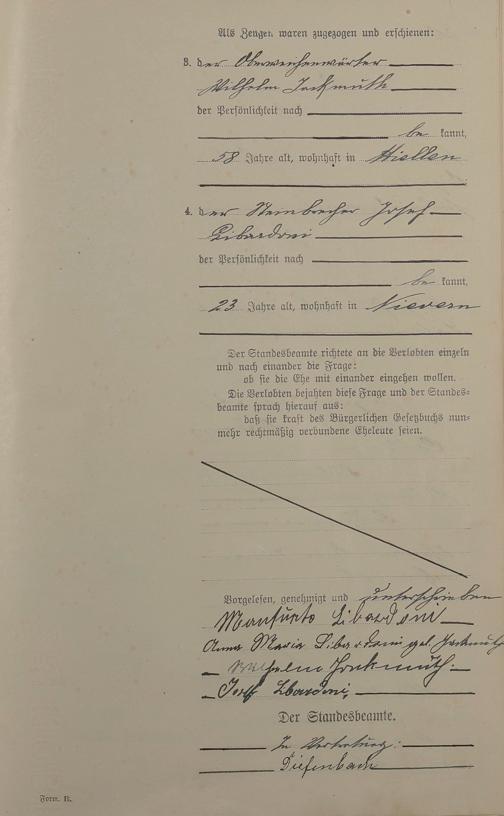 Als Zeugen waren zugezogen und erschienen:
3. der Oberweichenwärter
Wilhelm Jackmuth
der Persönlichkeit nach
be kannt,
58 Jahre alt, wohnhaft in Miellen
4. der Steinbrecher Josef
Libardoni
der Persönlichkeit nach
be kannt,
23 Jahre alt, wohnhaft in Nievern
Der Standesbeamte richtete an die Verlobten einzeln
und nach einander die Frage:
ob sie die Ehe mit einander eingehen wollen.
Die Verlobten bejahten diese Frage und der Standes-
beamte sprach hierauf aus:
daß sie kraft des Bürgerlichen Gesetzbuchs nun-
mehr rechtmäßig verbundene Eheleute seien.
Vorgelesen, genehmigt und unterschrieben
Libardoni
Anna Maria Libardoni geb. Jackmuth
Wilhelm Jackmuth
Josef Libardoni
Der Standesbeamte.
In Vertretung:
Diefenbach
Form. B.